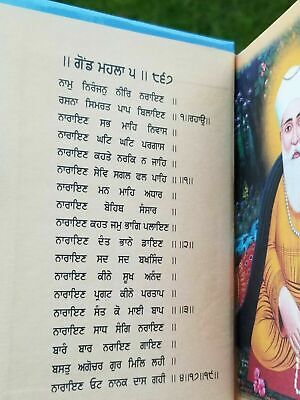 ॥ ਗੋਂਡ ਮਹਲਾ ੫ ॥ ੮੬੭
ਨਾਮੁ ਨਿਰੰਜਨੁ ਨੀਰਿ ਨਰਾਇਣ ॥
ਰਸਨਾ ਸਿਮਰਤ ਪਾਪ ਬਿਲਾਇਣ ॥੧॥ਰਹਾਉ॥
ਨਾਰਾਇਣ ਸਭ ਮਾਹਿ ਨਿਵਾਸ ॥
ਨਾਰਾਇਣ ਘਟਿ ਘਟਿ ਪਰਗਾਸ ॥
ਨਾਰਾਇਣ ਕਹਤੇ ਨਰਕਿ ਨ ਜਾਹਿ ॥
ਨਾਰਾਇਣ ਸੇਵਿ ਸਗਲ ਫਲ ਪਾਹਿ ॥੧॥
ਨਾਰਾਇਣ ਮਨ ਮਾਹਿ ਅਧਾਰ ॥
ਨਾਰਾਇਣ ਬੋਹਿਥ ਸੰਸਾਰ ॥
ਨਾਰਾਇਣ ਕਹਤ ਜਮੁ ਭਾਗਿ ਪਲਾਇਣ ॥
ਨਾਰਾਇਣ ਦੰਤ ਭਾਨੇ ਡਾਇਣ ॥੨॥
ਨਾਰਾਇਣ ਸਦ ਸਦ ਬਖਸਿੰਦ ॥
ਨਾਰਾਇਣ ਕੀਨੇ ਸੂਖ ਅਨੰਦ ॥
ਨਾਰਾਇਣ ਪ੍ਰਗਟ ਕੀਨੋ ਪਰਤਾਪ ॥
ਨਾਰਾਇਣ ਸੰਤ ਕੋ ਮਾਈ ਬਾਪ ॥੩॥
ਨਾਰਾਇਣ ਸਾਧ ਸੰਗਿ ਨਰਾਇਣ ॥
ਬਾਰੰ ਬਾਰ ਨਰਾਇਣ ਗਾਇਣ ॥
ਬਸਤੁ ਅਗੋਚਰ ਗੁਰ ਮਿਲਿ ਲਹੀ ॥
ਨਾਰਾਇਣ ਓਟ ਨਾਨਕ ਦਾਸ ਗਹੀ ॥੪॥੧੭॥੧੯॥